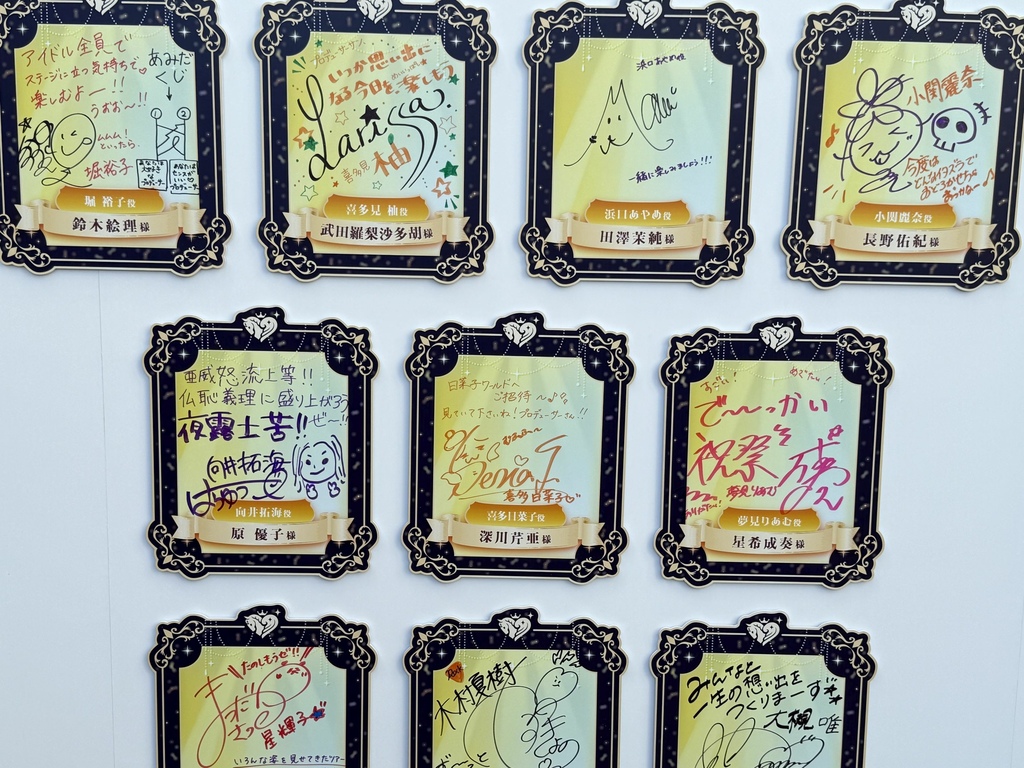 アイドル全員で
ステージに立つ気持ちで
楽しむよー!!
うおお〜!!
あみだ
くじ
ムムム!
といったら
堀裕子
① ②
堀 裕子役
鈴木絵理様
プロデューサーサン
いつか思い出に
なる今日を楽しもう
Larissa.
喜多見 柚
喜多見 柚役
武田羅梨沙多胡様
浜口あやめ役
一緒に楽しみましょう!!
浜口あやめ役
田澤茉純様
小関麗奈
今度は
小関麗奈役
長野佑紀様
亜威怒流上等!!
仏恥義理に盛り上がろう
ぜ〜!!
夜露士苦!!
向井拓海
はらゆうこ
向井拓海役
原 優子様
日菜子ワールドへ
ご招待〜♪
見ていて下さいね!プロデューサーさん!!
むふふ〜
喜多日菜子
喜多日菜子役
深川芹亜様
すごい!
めでたい!
で〜っかい
祝祭
夢見りあむ
夢見りあむ役
星希成奏様
たのしもうぜ!!
星輝子
いろんな姿を見せてきたツアー
木村夏樹
ず〜っと
みんなと
一生の想い出を
つくりまーす
大槻 唯